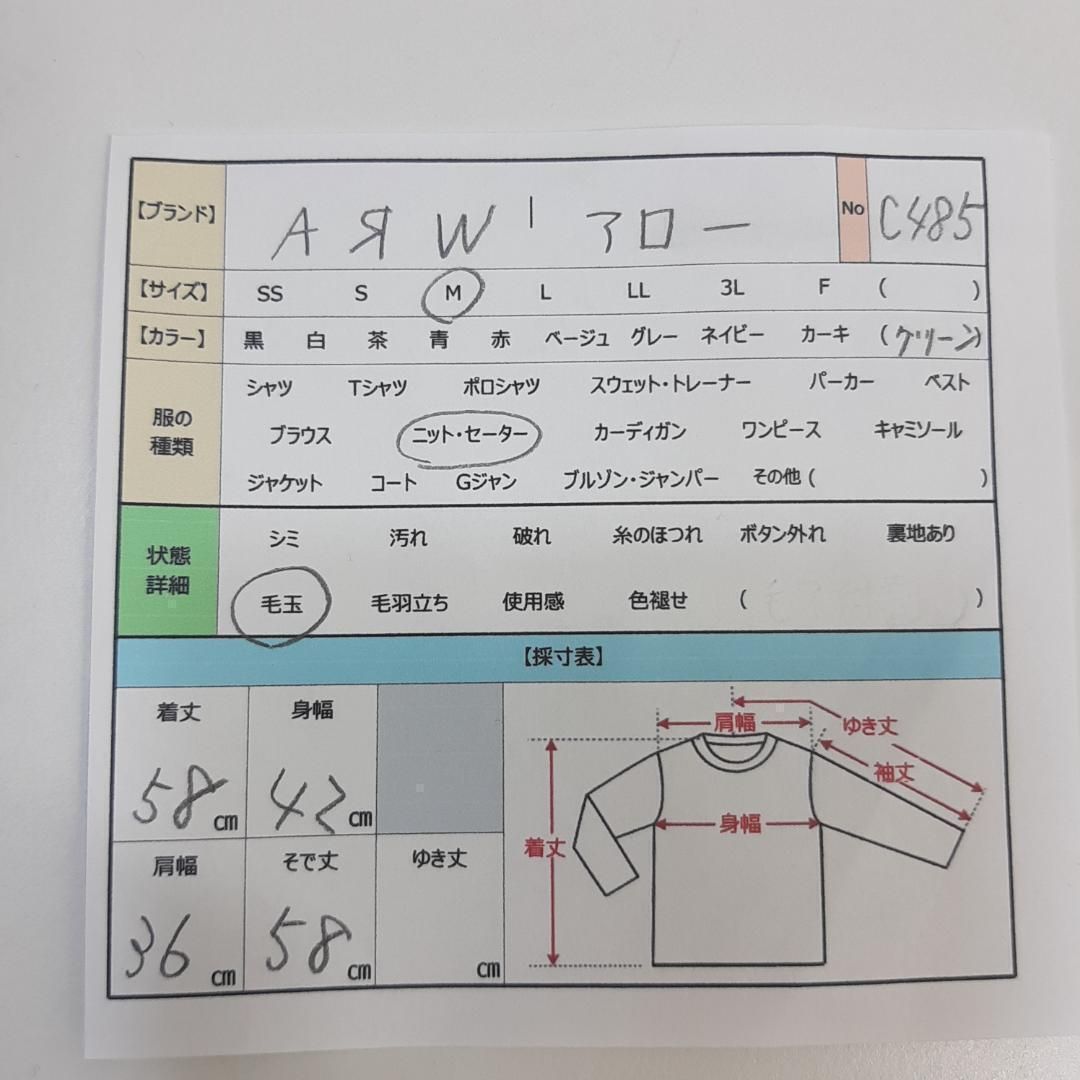 【ブランド】 AЯW' アロー No C485
【サイズ】 SS S M L LL 3L F ( )
【カラー】 黒 白 茶 青 赤 ベージュ グレー ネイビー カーキ (グリーン)
服の
種類
シャツ Tシャツ ポロシャツ スウェット・トレーナー パーカー ベスト
ブラウス ニット・セーター カーディガン ワンピース キャミソール
ジャケット コート Gジャン ブルゾン・ジャンパー その他 ( )
状態
詳細
シミ 汚れ 破れ 糸のほつれ ボタン外れ 裏地あり
毛玉 毛羽立ち 使用感 色褪せ ( )
【採寸表】
着丈 身幅
58cm 42cm
肩幅 そで丈 ゆき丈
36cm 58cm cm
肩幅 ゆき丈
袖丈
身幅
着丈